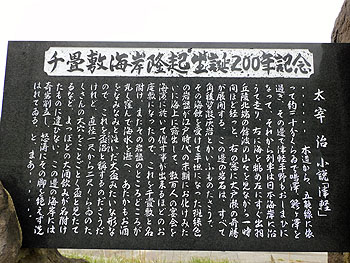 千畳敷海岸隆起生誕200年記念
太宰治 小説「津軽」
・・・木造から、五能線に依
つて約三十分くらゐで鳴沢、鰺ヶ沢を
過ぎ、その辺で津軽平野もおしまひに
なつて、それから列車は日本海岸に沿
うて走り、右に海を眺め左にすぐ出羽
丘陵北端の余波の山々を見ながら一時
間ほど経つと、右の窓に大戸瀬の奇勝
が展開する。この辺の岩石は、すべて
角稜質凝灰岩とかいふものださうで、
その海蝕を受けて平坦になつた斑緑色
の岩盤が江戸時代の末期にお化けみた
いに海上に露出して、数百人の宴会を
海浜に於いて催す事が出来るほどのお
座敷になつたので、これを千畳敷と名
附け、またその岩盤のところどころが
丸く窪んで海水を湛へ、あたかもお酒
をなみなみと注いだ大盃みたいな形な
ので、これを盃沼と称するのださうだ
けれど、直径一尺から二尺くらゐのた
くさんの大穴をことごとく盃と見たて
るなど、よつぽどの大酒飲みが名附け
たものに違ひない。この辺の海岸には
奇岩削立し、怒濤にその脚を絶えず洗
はれてゐる、と、まあ・・・